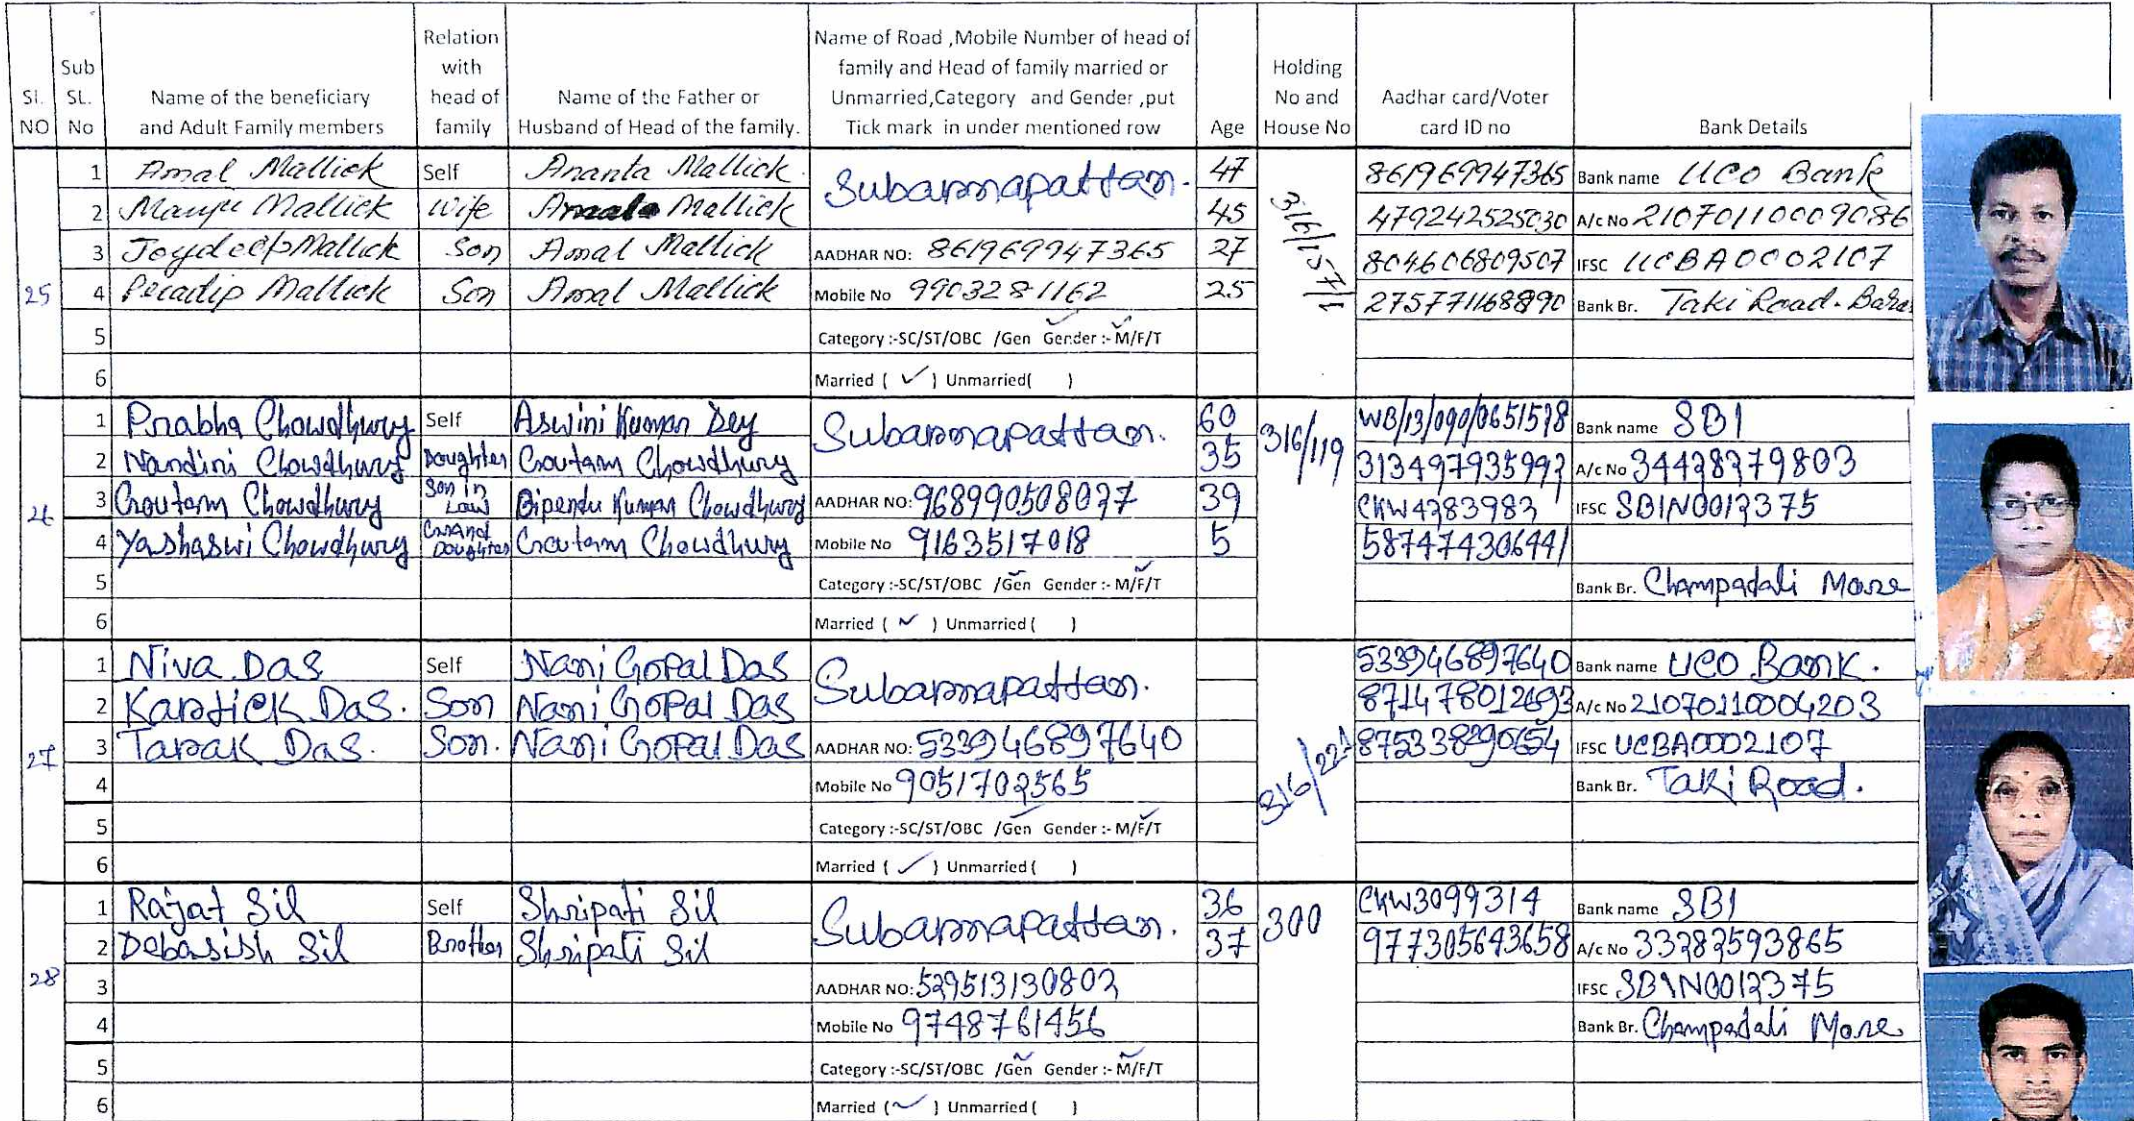 Sl. NO | Sub SL. No | Name of the beneficiary and Adult Family members | Relation with head of family | Name of the Father or Husband of Head of the family. | Name of Road ,Mobile Number of head of family and Head of family married or Unmarried,Category and Gender ,put Tick mark in under mentioned row | Age | Holding No and House No | Aadhar card/Voter card ID no | Bank Details
25 316/157/1
1 Amal Mallick Self Ananta Mallick Subarnapattan. 47 861969947365 Bank name UCO Bank
2 Manju Mallick Wife Amal Mallick 45 479242525030 A/c No 21070110009086
3 Joydeep Mallick Son Amal Mallick AADHAR NO: 861969947365 27 804606809507 IFSC UCBA0002107
4 Pradip Mallick Son Amal Mallick Mobile No 9903281162 25 275771168890 Bank Br. Taki Road.
5 Category :-SC/ST/OBC /Gen Gender :- M/F/T
6 Married ( ✓ ) Unmarried( )
26 316/119
1 Prabha Chowdhury Self Aswini Kumar Dey Subarnapattan. 60 WB/13/090/0651578 Bank name SBI
2 Nandini Chowdhury Doughter Goutam Chowdhury 35 313497935992 A/c No 34428279803
3 Goutam Chowdhury Son in Law Bipendu Kumar Chowdhury AADHAR NO: 968990508027 39 CKW4283982 IFSC SBIN0012375
4 Yashaswi Chowdhury Grand Doughter Goutam Chowdhury Mobile No 9163517018 5 587474306441
5 Category :-SC/ST/OBC /Gen Gender :- M/F/T Bank Br. Champadali More
6 Married ( ✓ ) Unmarried ( )
27 316/221
1 Niva Das Self Nani Gopal Das Subarnapattan. 533946897640 Bank name UCO Bank.
2 Kartick Das. Son Nani Gopal Das 871478012693 A/c No 21070110004203
3 Tarak Das. Son. Nani Gopal Das AADHAR NO: 533946897640 875338290654 IFSC UCBA0002107
4 Mobile No 9051702565 Bank Br. Taki Road.
5 Category :-SC/ST/OBC /Gen Gender :- M/F/T
6 Married ( ✓ ) Unmarried ( )
28 300
1 Rajat Sil Self Shripati Sil Subarnapattan. 36 CKW3099314 Bank name SBI
2 Debasish Sil Brother Shripati Sil 37 977305643658 A/c No 33282593865
3 AADHAR NO: 529513130802 IFSC SBIN0012375
4 Mobile No 9748761456 Bank Br. Champadali More
5 Category :-SC/ST/OBC /Gen Gender :- M/F/T
6 Married ( ✓ ) Unmarried ( )